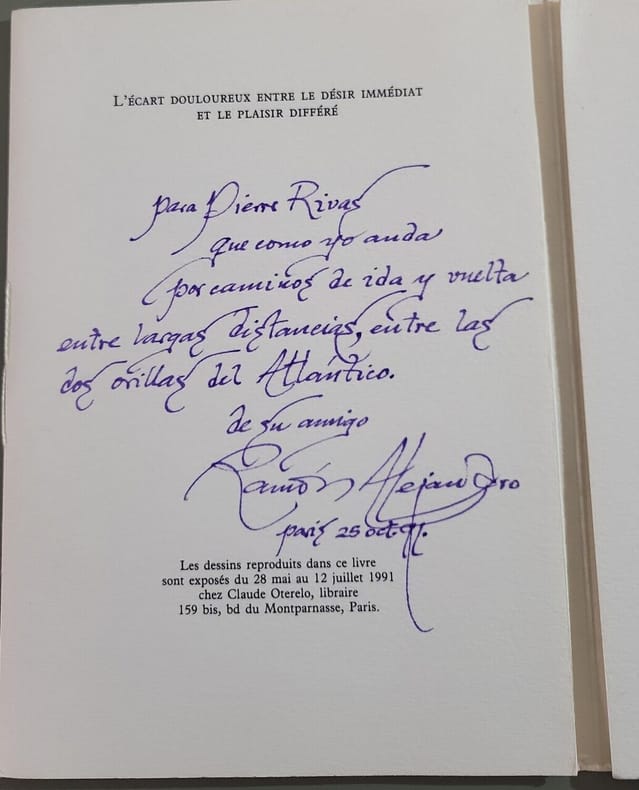 L'ÉCART DOULOUREUX ENTRE LE DÉSIR IMMÉDIAT
ET LE PLAISIR DIFFÉRÉ
para Pierre Rivas
que como yo anda
por caminos de ida y vuelta
entre largas distancias, entre las
dos orillas del Atlántico.
de su amigo
Ramón Alejandro
paris 25 oct. 91.
Les dessins reproduits dans ce livre
sont exposés du 28 mai au 12 juillet 1991
chez Claude Oterelo, libraire
159 bis, bd du Montparnasse, Paris.